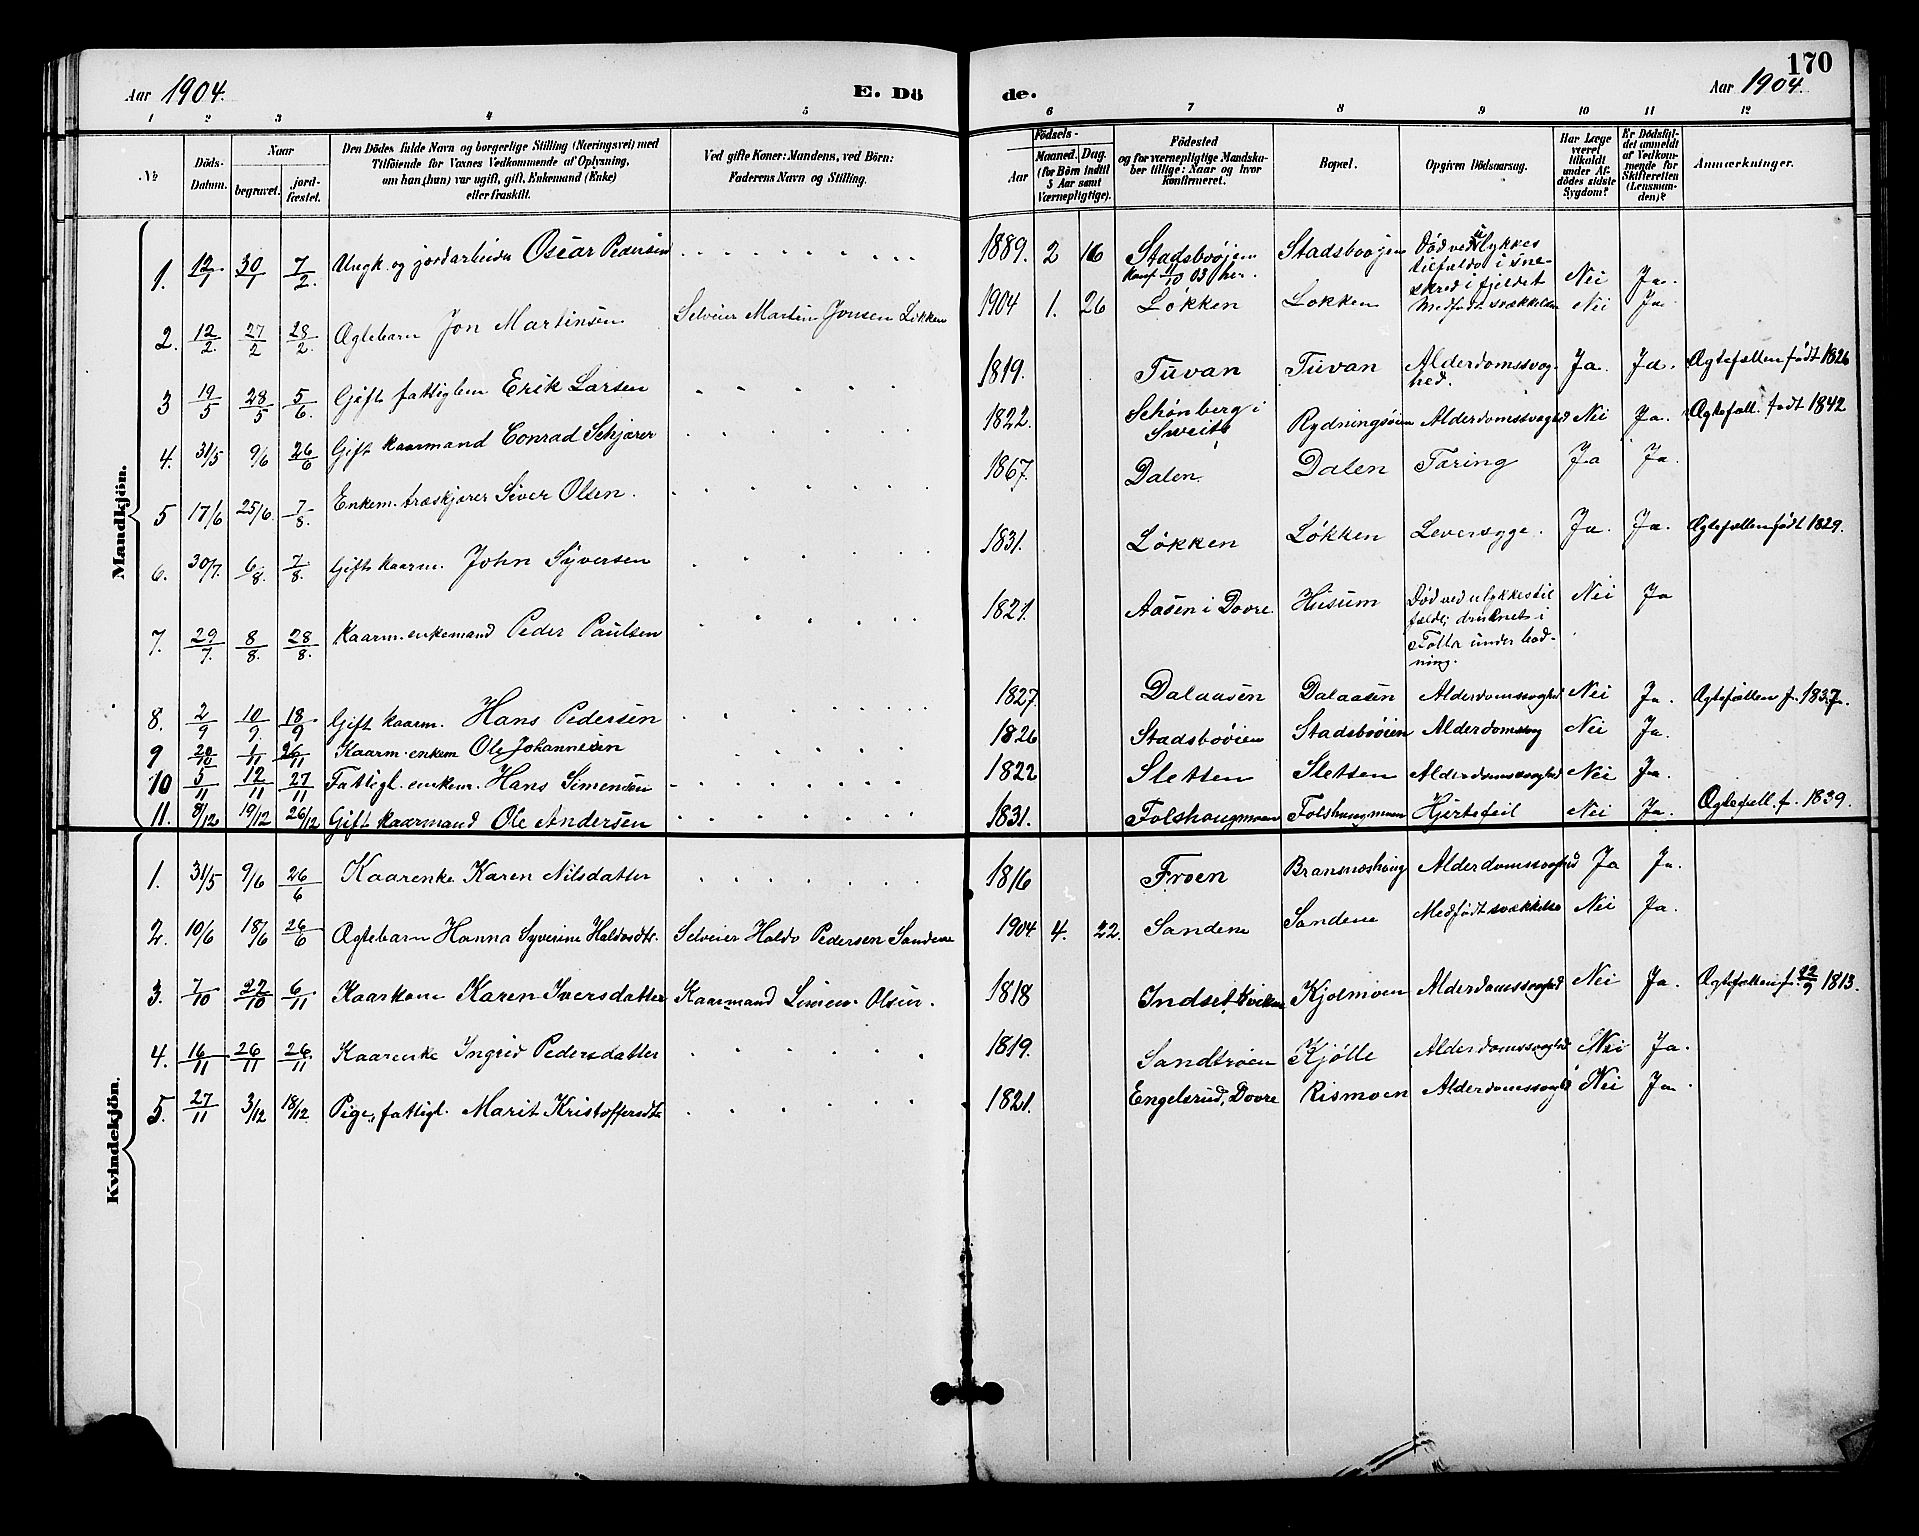 170
Aar 1904.
E. Dö
de.
Aar 1904.
1 2 3 4 5
6 7 8 9 10 11 12
№
Döds-Datum.
Naar
begravet.
jord-fæstet.
Den Dödes fulde Navn og borgerlige Stilling (Næringsvei) med
Tilföiende for Voxnes Vedkommende af Oplysning,
om han (hun) var ugift, gift, Enkemand (Enke)
eller fraskilt.
Ved gifte Koner: Mandens, ved Börn:
Faderens Navn og Stilling.
Födsels-
Aar
Maaned. Dag.
(for Börn indtil
5 Aar samt
Værnepligtige).
Födested
og for værnepligtige Mandska-
ber tillige: Naar og hvor
konfirmeret.
Bopæl.
Opgiven Dödsaarsag.
Har Læge
været
tilkaldt
under Af-
dödes sidste
Sygdom?
Er Dödsfal-
det anmeldt
af Vedkom-
mende for
Skifteretten
(Lensman-
den)?
Anmærkninger.
Mandkjön.
1. 12/1 30/1 7/2 Ungk. og jordarbeider Oscar Pedersen 1889. 2 16 Stadsbvøjen Konf. 11/10 03 her. Stadsbvøjen Død ved ulykkes tilfælde i sne skred i fjeldet Nei Ja.
2. 12/2. 27/2 28/2. Ægtebarn Jon Martinsen Selveier Martin Jonsen Løkken 1904 1. 26 Løkken Løkken Medfødt svækkelse Nei Ja
3 19/5 28/5 5/6. Gift fattiglem Erik Larsen 1819. Tüvan Tüvan Alderdomssvag-hed. Ja. Ja. Ægtefællen født 1826
4. 31/5 9/6 26/6 Gift kaarmand Conrad Schjærer 1822. Schønberg i Sweits Rydningsøien Alderdomssvaghed Nei Ja. Ægtefæll. født 1842
5 17/6 25/6. 7/8. Enkem. træskjærer Siver Olsen. 1867. Dalen. Dalen Tæring Ja Ja.
6. 30/7. 6/8. 7/8. Gift kaarm. John Syversen 1831. Løkken Løkken Leversyge. Ja. Ja. Ægtefællen født 1829.
7. 29/7. 8/8. 28/8. Kaarm. enkemand Peder Paulsen 1821. Aasen i Dovre Husum Død ved ulykkestil fælde; druknet i Folla under bad-ning. Nei Ja
8. 2/9 10/9. 18/9 Gift kaarm. Hans Pedersen 1827. Dalaasen Dalaasen Alderdomssvaghed Nei Ja. Ægtefællen f. 1837.
9 20/10 1/11 26/11 Kaarm. enkem Ole Johannesen 1826 Stadsbvøien Stadsbvøien Alderdomssvag Nei Ja.
10 5/11 12/11 27/11 Fattigl. enkem. Hans Simensen 1822 Sletten Sletten Alderdomssvaghed Nei Ja.
11. 8/12 19/12 26/12 Gift kaarmand Ole Andersen 1831. Folshaugmoen Folshaugmoen Hjertefeil Nei Ja. Ægtefæll. f. 1839.
Kvindekjön.
1. 31/5 9/6 26/6 Kaarenke Karen Nilsdatter 1816 Froen Alderdomssvaghed Ja Ja.
2. 10/6 18/6 26/6 Ægtebarn Hanna Syverine Haldosdtr. Selveier Haldo Pedersen Sandene 1904 4. 22. Sandene Sandene Medfødt svækkelse Nei Ja.
3. 7/10 22/10 6/11 Kaarkone Karen Iversdatter Kaarmand Simen Olsen. 1818 Indset, Kvikne Kjølmoen Alderdomssvaghed Nei Ja. Ægtefællen f. 22/9 1813.
4. 16/11 26/11 26/11. Kaarenke Ingrid Pedersdatter 1819. Sandtrøen Kjølle Alderdomssvaghed Nei Ja.
5. 27/11 3/12 18/12. Pige, fattigl. Marit Kristoffersdtr 1821. Engelsrud, Dovre Rismoen Alderdomssvagh Nei Ja.